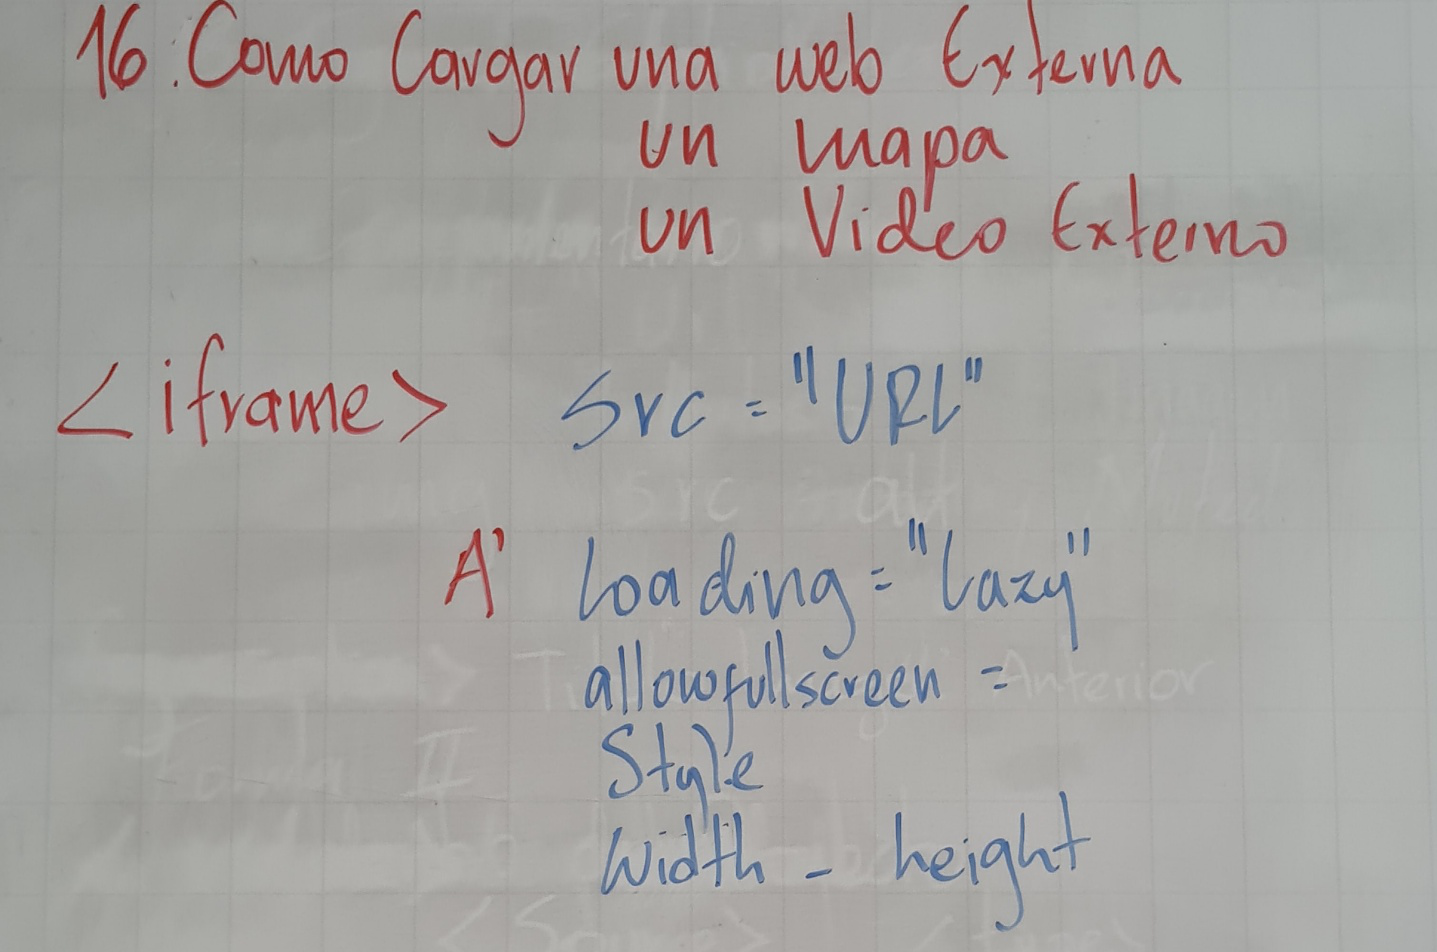 16. Como Cargar una web Externa
un mapa
un Video Externo
<iframe> src = "URL"
A' loading = "lazy"
allowfullscreen =
Style
width - height